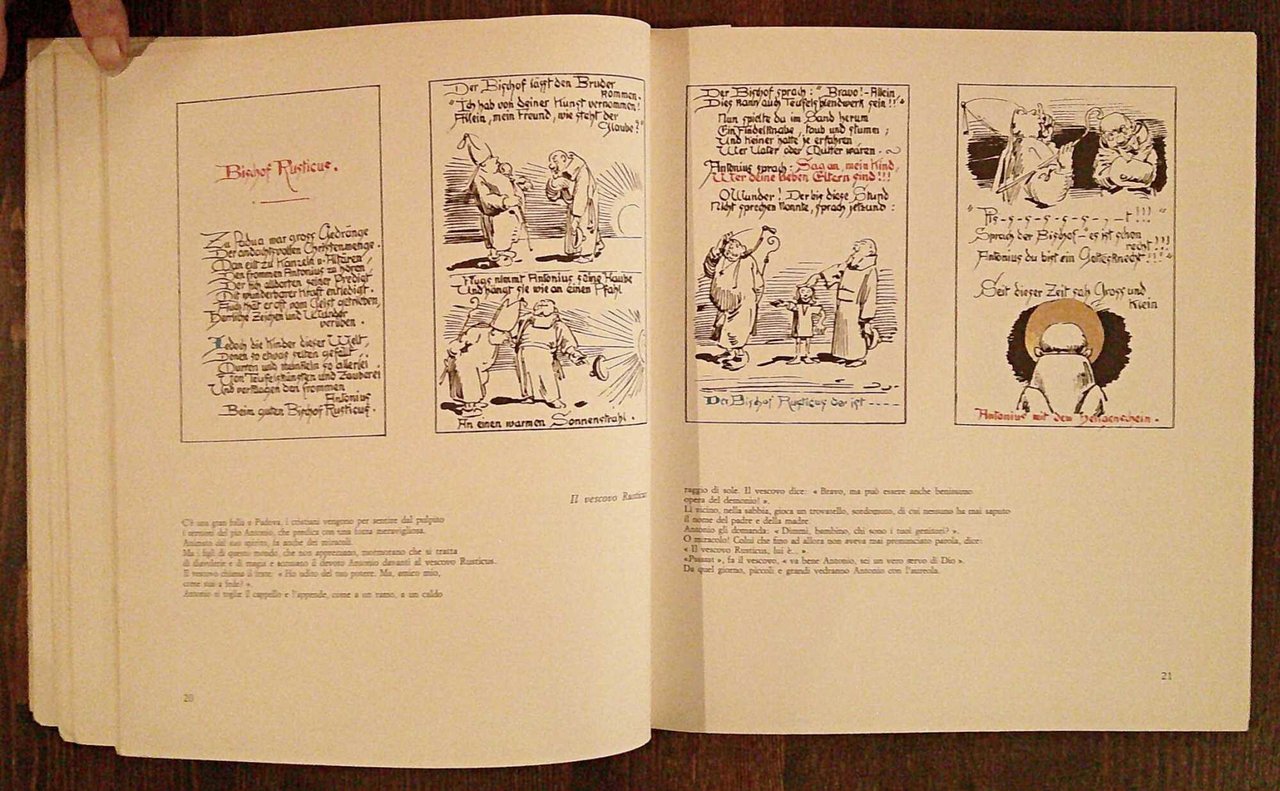 Bischof Rusticus.
Zu Padua war gross Gedränge
Der andachtsvollen Christenmenge.
Man eilt zu Kanzeln u. Altären,
Den frommen Antonius zu hören,
Der sich allborten seiner Predigt
Mit wunderbarer Kraft entledigt.
Auch that er oft vom Geist getrieben,
Herrliche Zeichen und Wunder
verüben.
Jedoch die Kinder dieser Welt,
Denen so etwas selten gefällt
Murrten und munkeln so allerlei
Von Teufelskünsten und Zauberei
Und verklagen den frommen
Antonius
Beim guten Bischof Rusticus.
Der Bischof lässt den Bruder
kommen.
"Ich hab von deiner Kunst vernommen!
Allein, mein Freund, wie steht der
Glaube?"
Flugs nimmt Antonius seine Haube
Und hängt sie wie an einen Pfahl
An einen warmen Sonnenstrahl.
Der Bischof sprach: "Bravo!- Allein,
Dies kann auch Teufelsblendwerk sein!!"
Nun spielte da im Sand herum
Ein Findelknabe, taub und stumm;
Und Keiner hatte je erfahren
Wer Vater oder Mutter waren.
Antonius sprach: Sag an, mein Kind,
Wer deine lieben Eltern sind!!!
O Wunder! Der bis diese Stund
Nicht sprechen konnte, sprach jetzund:
Der Bischof Rusticus der ist ----
"Pis-s-s-s-s-s-,-t!!!"
Sprach der Bischof-"es ist schon
recht!!!
Antonius du bist ein Gottesknecht!!!"
Seit dieser Zeit sah Gross und
Klein
Antonius mit dem Heilgenschein.
Il vescovo Rusticus
C'è una gran folla a Padova, i cristiani vengono per sentire dal pulpito
i sermoni del pio Antonio, che predica con una forza meravigliosa.
Animato dal suo spirito, fa anche dei miracoli.
Ma i figli di questo mondo, che non apprezzano, mormorano che si tratta
di diavolerie e di magia e accusano il devoto Antonio davanti al vescovo Rusticus.
Il vescovo chiama il frate: « Ho udito del tuo potere. Ma, amico mio,
come stai a fede? ».
Antonio si toglie il cappello e l'appende, come a un ramo, a un caldo
20
raggio di sole. Il vescovo dice: « Bravo, ma può essere anche benissimo
opera del demonio! ».
Lì vicino, nella sabbia, gioca un trovatello, sordomuto, di cui nessuno ha mai saputo
il nome del padre e della madre.
Antonio gli domanda: « Dimmi, bambino, chi sono i tuoi genitori? ».
O miracolo! Colui che fino ad allora non aveva mai pronunciato parola, dice:
« Il vescovo Rusticus, lui è... ».
«Psssset », fa il vescovo, « va bene Antonio, sei un vero servo di Dio ».
Da quel giorno, piccoli e grandi vedranno Antonio con l'aureola.
21